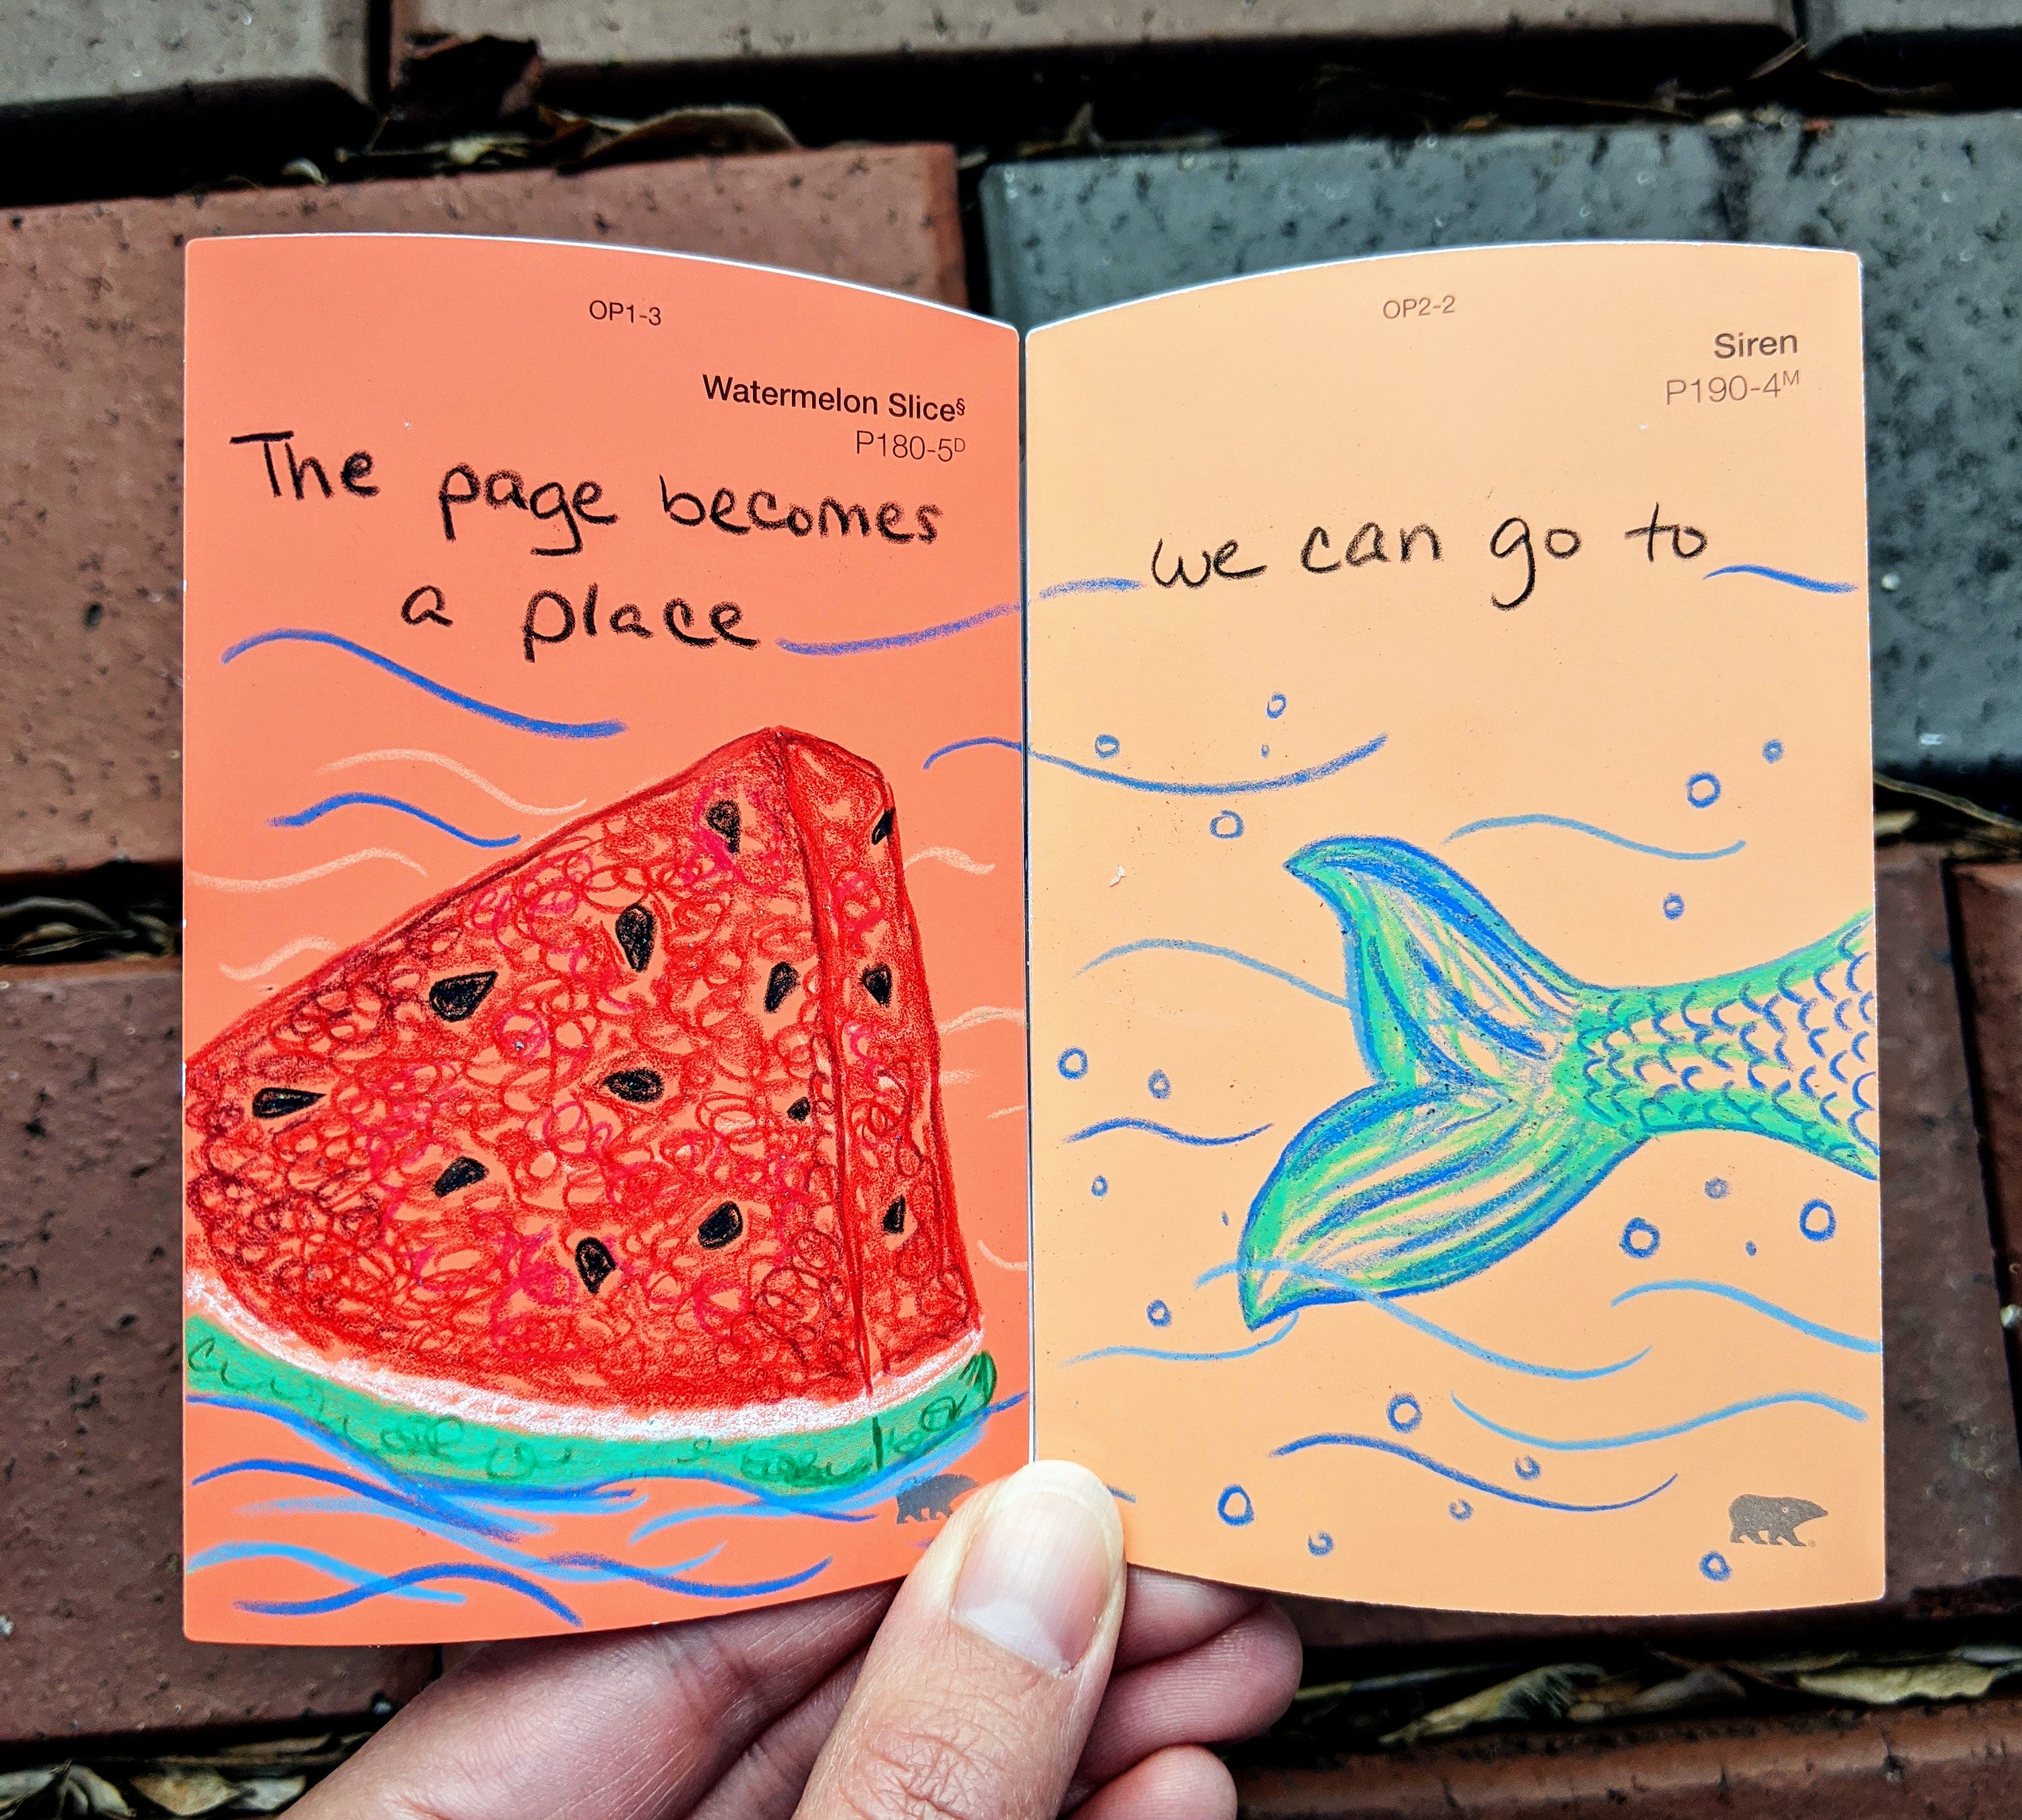 OP1-3
Watermelon Slice§
P180-5D
The page becomes
a place
OP2-2
Siren
P190-4M
we can go to